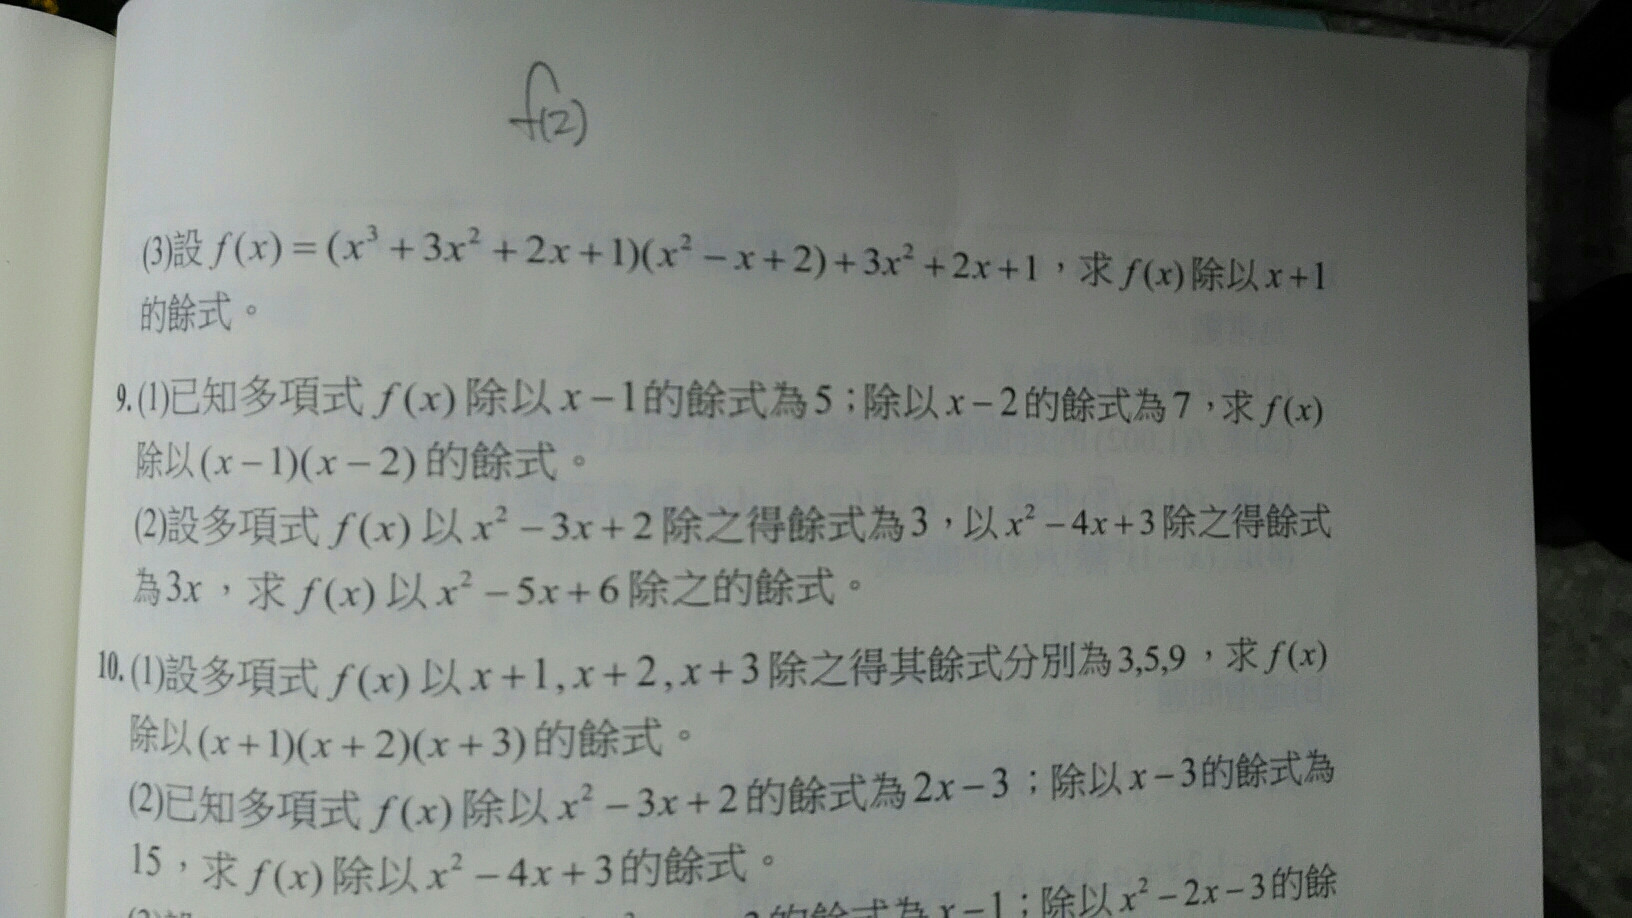 f(2)
(3)設 f(x) = (x³ + 3x² + 2x + 1)(x² − x + 2) + 3x² + 2x + 1，求 f(x) 除以 x + 1
的餘式。
9. (1)已知多項式 f(x) 除以 x − 1 的餘式為 5；除以 x − 2 的餘式為 7，求 f(x)
除以 (x − 1)(x − 2) 的餘式。
(2)設多項式 f(x) 以 x² − 3x + 2 除之得餘式為 3，以 x² − 4x + 3 除之得餘式
為 3x，求 f(x) 以 x² − 5x + 6 除之的餘式。
10. (1)設多項式 f(x) 以 x + 1, x + 2, x + 3 除之得其餘式分別為 3,5,9，求 f(x)
除以 (x + 1)(x + 2)(x + 3) 的餘式。
(2)已知多項式 f(x) 除以 x² − 3x + 2 的餘式為 2x − 3；除以 x − 3 的餘式為
15，求 f(x) 除以 x² − 4x + 3 的餘式。
的餘式為 x − 1；除以 x² − 2x − 3 的餘